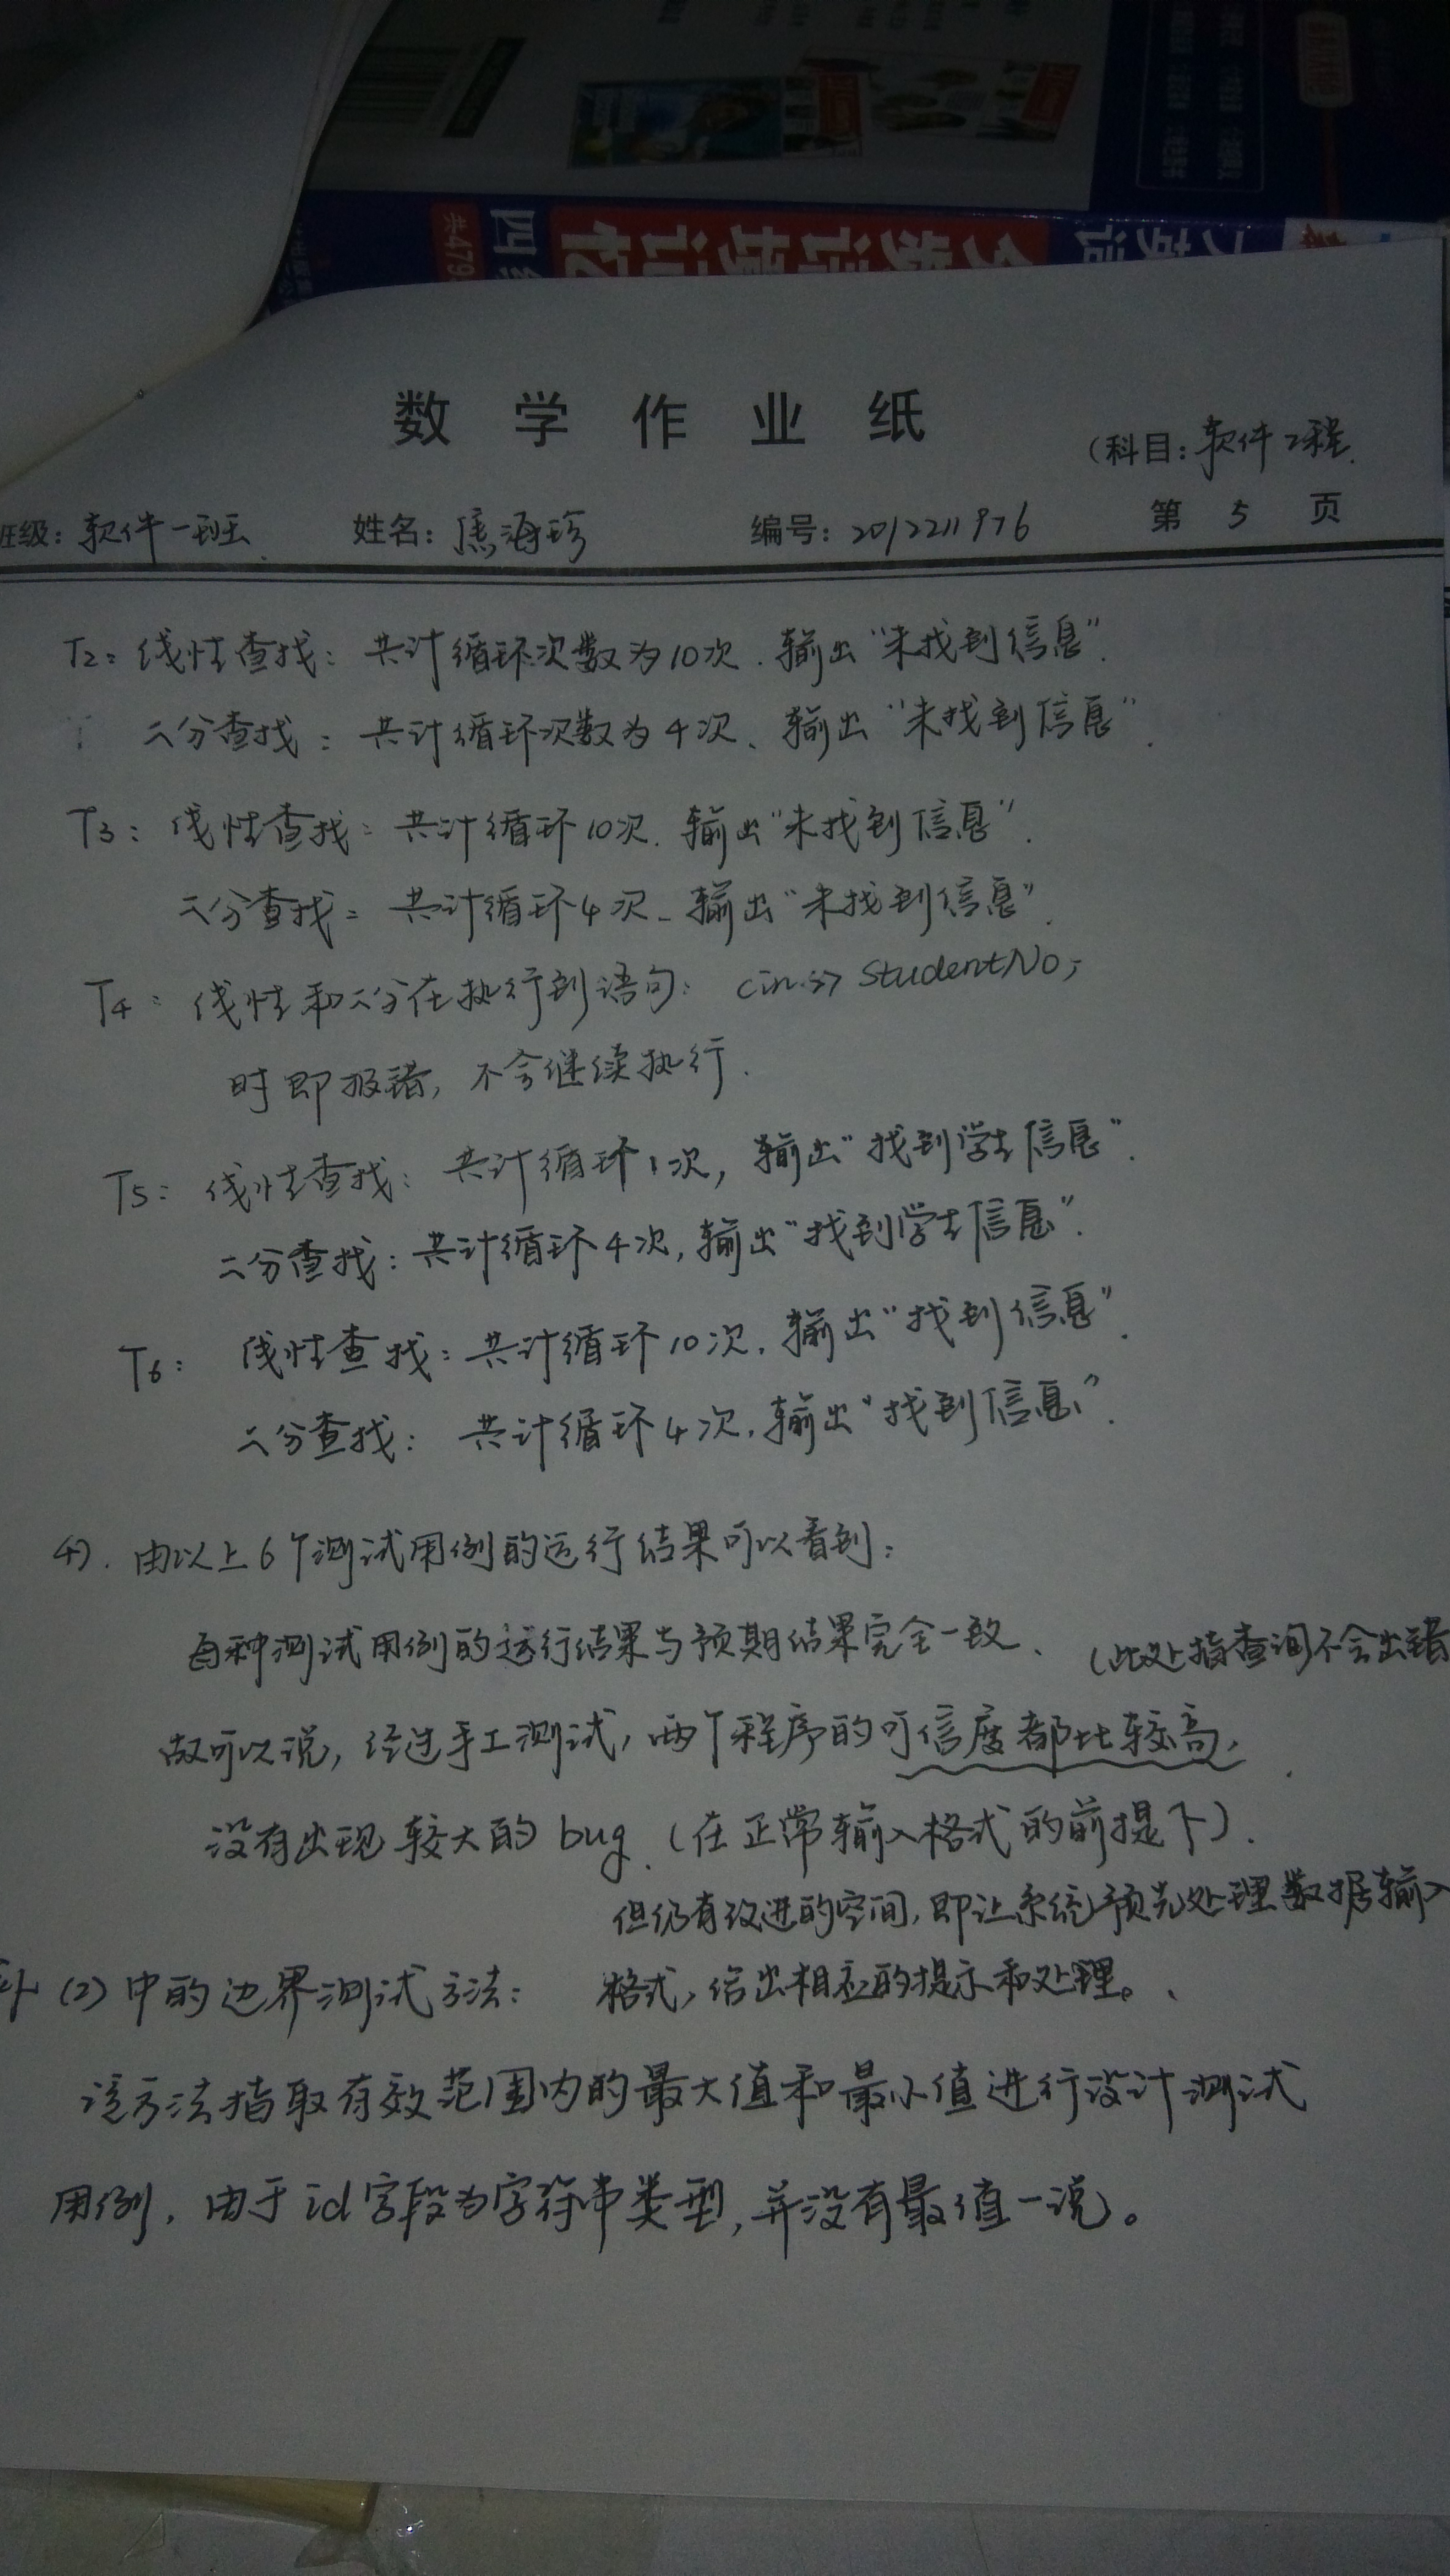 共479
四
数学作业纸
(科目:软件工程.
班级:软件一班. 姓名:焦海珍 编号:2012211976 第 5 页
T2: 线性查找: 共计循环次数为10次. 输出“未找到信息”.
二分查找: 共计循环次数为4次、输出“未找到信息”.
T3: 线性查找: 共计循环10次. 输出“未找到信息”.
二分查找: 共计循环4次、输出“未找到信息”.
T4: 线性和二分在执行到语句: cin>> StudentNo;
时即报错, 不会继续执行.
T5: 线性查找: 共计循环1次, 输出“找到学生信息”.
二分查找: 共计循环4次, 输出“找到学生信息”.
T6: 线性查找: 共计循环10次, 输出“找到信息”.
二分查找: 共计循环4次, 输出“找到信息”.
4). 由以上6个测试用例的运行结果可以看到:
每种测试用例的运行结果与预期结果完全一致、(此处指查询不会出错
故可以说, 经过手工测试, 两个程序的可信度都比较高,
没有出现较大的bug. (在正常输入格式的前提下).
但仍有改进的空间, 即让系统预先处理数据输入
格式, 给出相应的提示和处理。
补 (2) 中的边界测试方法:
该方法指取有效范围内的最大值和最小值进行设计测试
用例, 由于id字段为字符串类型, 并没有最值一说。